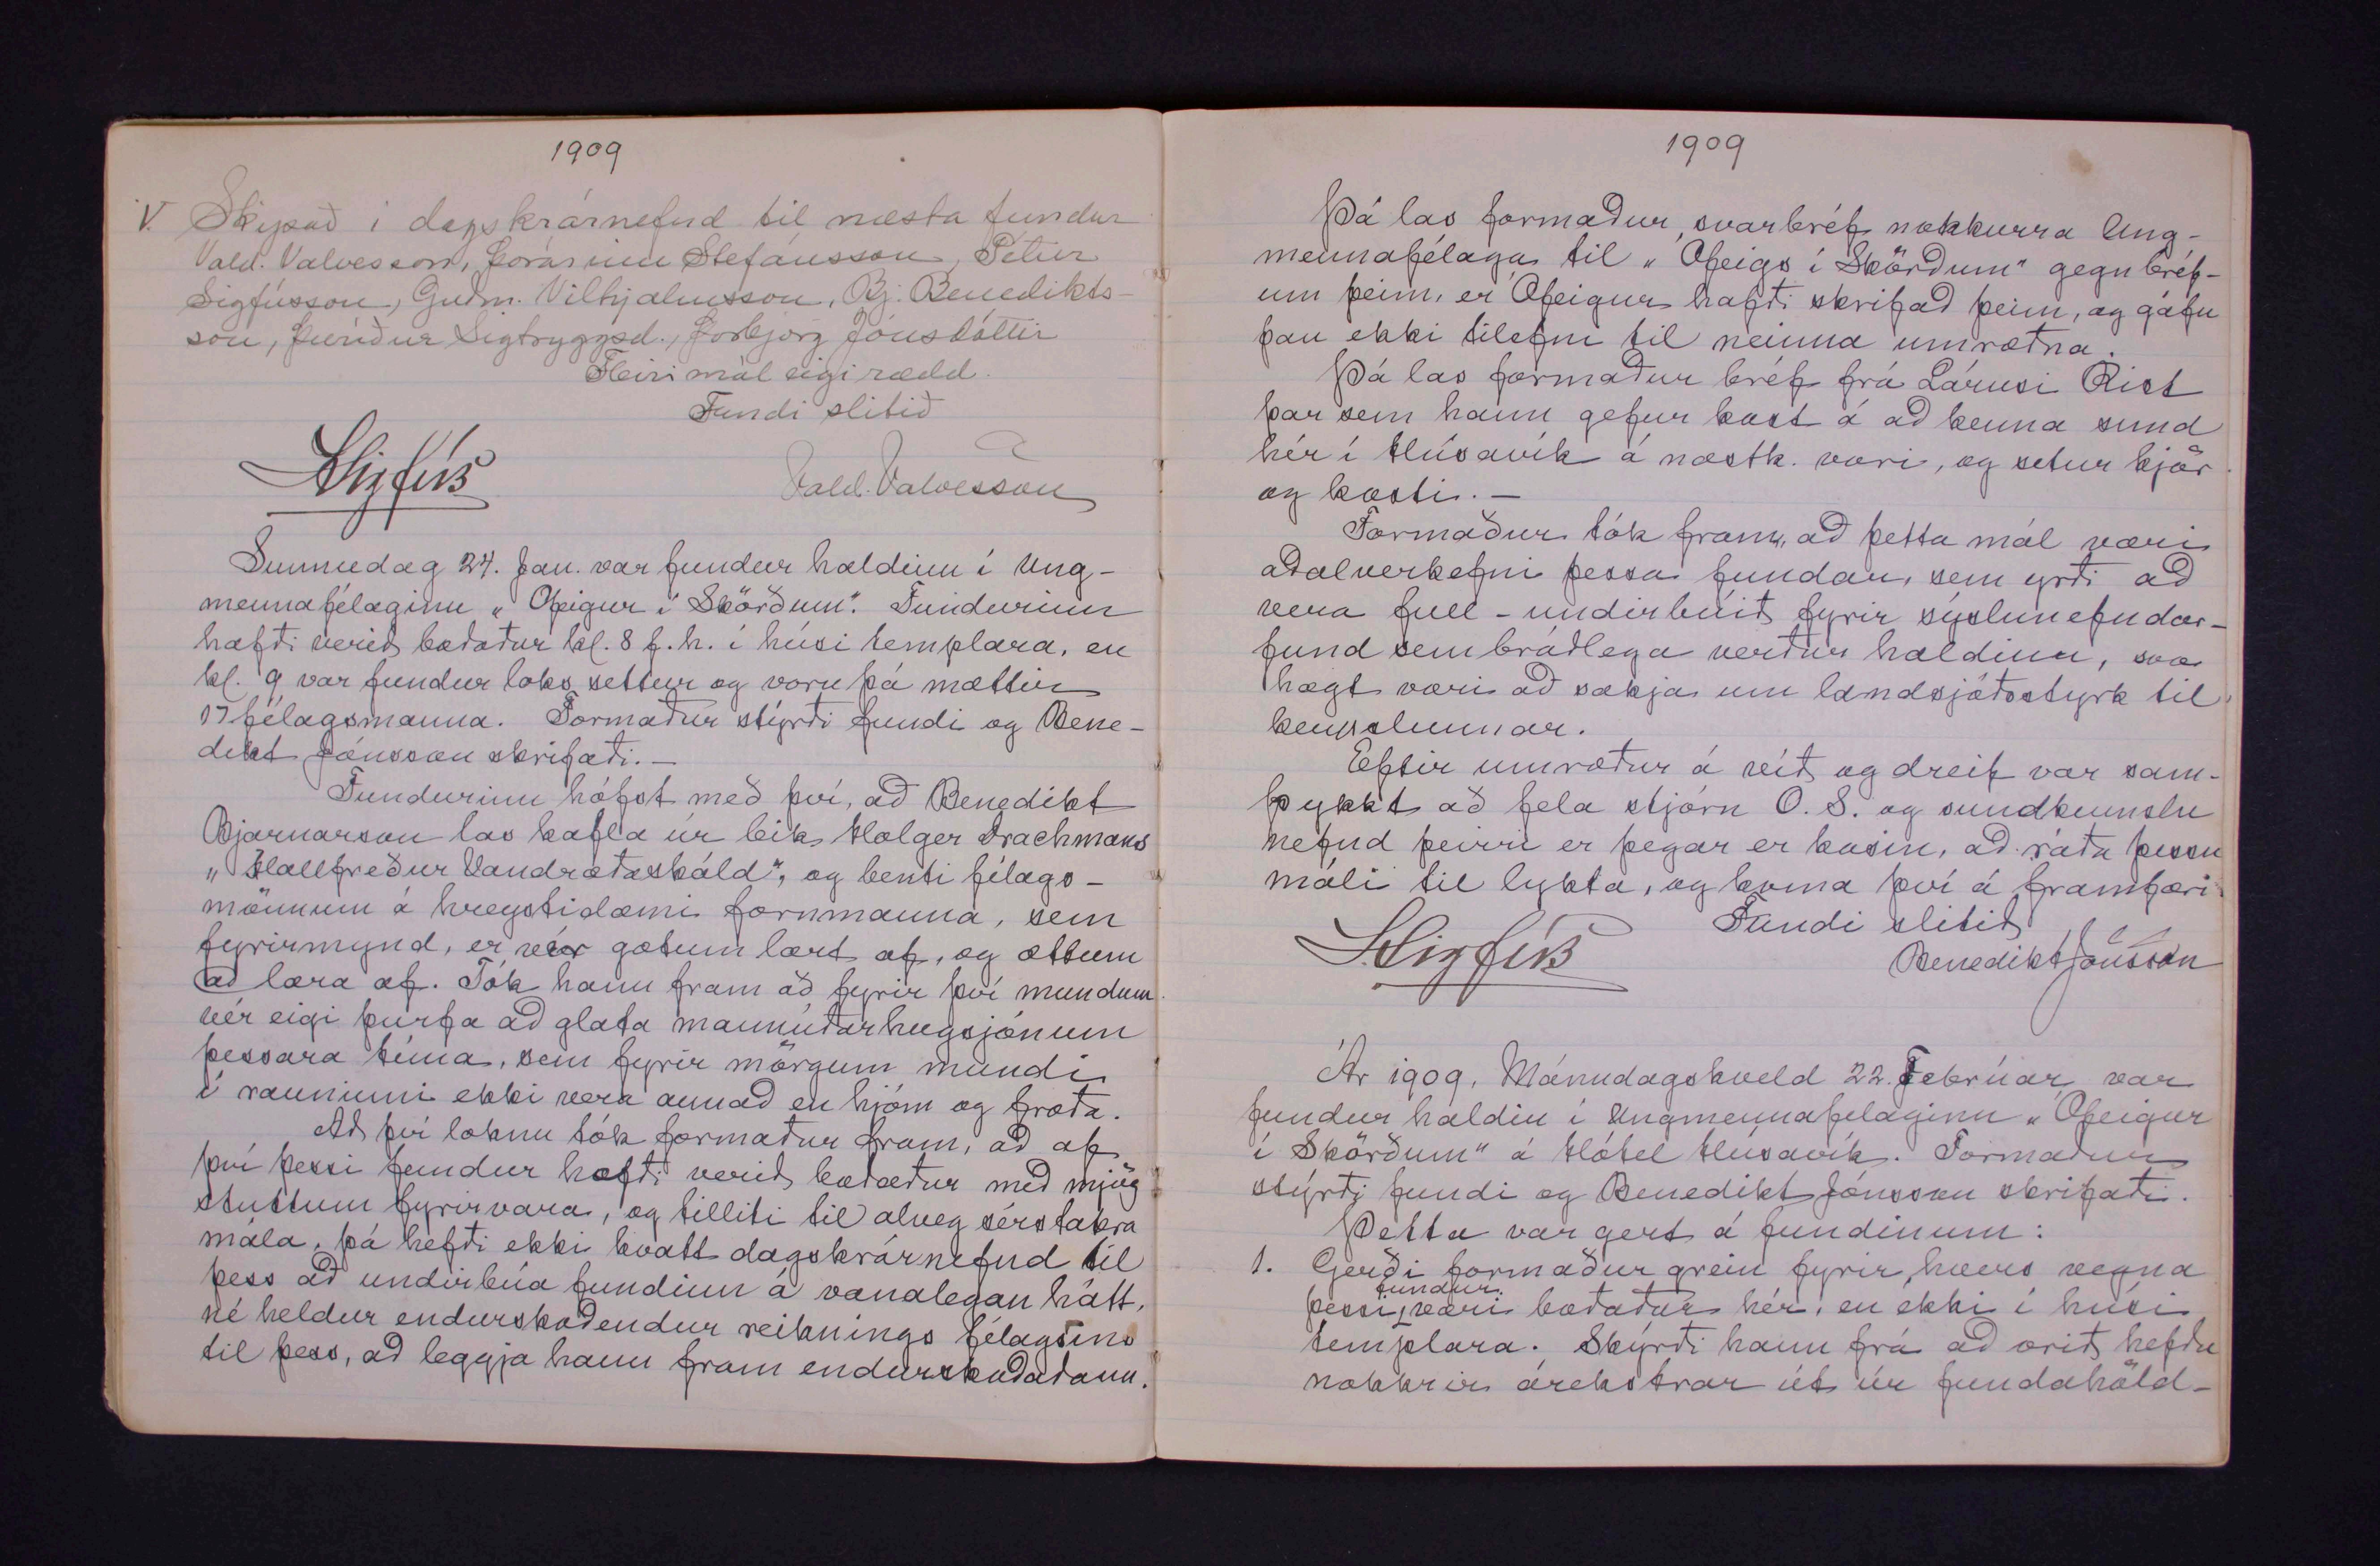 1909
V. Skipað í dagskrárnefnd til næsta fundar
Vald. Valvesson, Þórarinn Stefánsson, Pétur
Sigfússon, Guðm. Vilhjálmsson, Bj. Benedikts-
son, Þuríður Sigtryggsd., Þorbjörg Jónsdóttir
Fleiri mál eigi rædd.
Fundi slitið
Sigfús
Vald. Valvesson
Sunnudag 24. Jan. var fundur haldinn í Ung-
mennafélaginu „Ófeigur í Skörðum“. Fundurinn
hafði verið boðaður kl. 8 f.h. í húsi templara, en
kl. 9 var fundur loks settur og voru þá mættir
17 félagsmanna. Formaður stýrði fundi og Bene-
dikt Jónsson skrifaði. —
Fundurinn hófst með því, að Benedikt
Bjarnarson las kafla úr leik Holger Drachmans
„Hallfreður Vandræðaskáld“, og benti félags-
mönnum á hreystidæmi fornmanna, sem
fyrirmynd, er vér gætum lært af, og ættum
að læra af. Tók hann fram að fyrir því mundum
vér eigi þurfa að glata mannúðarhugsjónum
þessara tíma, sem fyrir mörgum mundi
í rauninni ekki vera annað en hjóm og froða.
Að því loknu tók formaður fram, að af
því þessi fundur hafði verið boðaður með mjög
stuttum fyrirvara, og tilliti til alveg sérstakra
mála, þá hefði ekki kvatt dagskrárnefnd til
þess að undirbúa fundinn á vanalegan hátt,
né heldur endurskoðendur reiknings félagsins
til þess, að leggja hann fram endurskoðaðann.
1909
Þá las formaður, svarbréf nokkurra Ung-
mennafélaga til „Ófeigs í Skörðum“ gegn bréf-
um þeim, er Ófeigur hafði skrifað þeim, og gáfu
þau ekki tilefni til neinna umræðna.
Þá las formaður bréf frá Lárusi Rist
þar sem hann gefur kost á að kenna sund
hér í Húsavík á næstk. vori, og setur kjör
og kosti. —
Formaður tók fram, að þetta mál væri
aðalverkefni þessa fundar, sem yrði að
vera full-undirbúið fyrir sýslunefndar-
fund sem bráðlega verður haldinn, svo
hægt væri að sækja um landsjóðsstyrk til
kenslunnar.
Eftir umræður á víð og dreif var sam-
þykkt að fela stjórn Ó. S. og sundkennslu
nefnd þeirri er þegar er kosin, að ráða þessu
máli til lykta, og koma því á framfæri.
Fundi slitið
Sigfús
Benedikt Jónsson
Ár 1909, Mánudagskveld 22. Febrúar var
fundur haldin í Ungmennafélaginu „Ófeigur
í Skörðum“ á Hótel Húsavík. Formaður
stýrði fundi og Benedikt Jónsson skrifaði.
Þetta var gert á fundinum:
1. Gerði formaður grein fyrir, hvers vegna
þessi fundur væri boðaður hér, en ekki í húsi
templara. Skýrði hann frá að orið hefðu
nokkrir árekstrar út úr fundahöld-